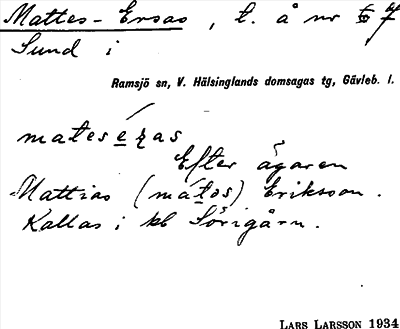 Mattes-Ersas, t. å nr 6 7
Sund i
Ramsjö sn, V. Hälsinglands domsagas tg, Gävleb. l.
mateséras
Efter ägaren
Mattias (mátos) Eriksson.
Kallas i kb Sörigårn.
LARS LARSSON 1934